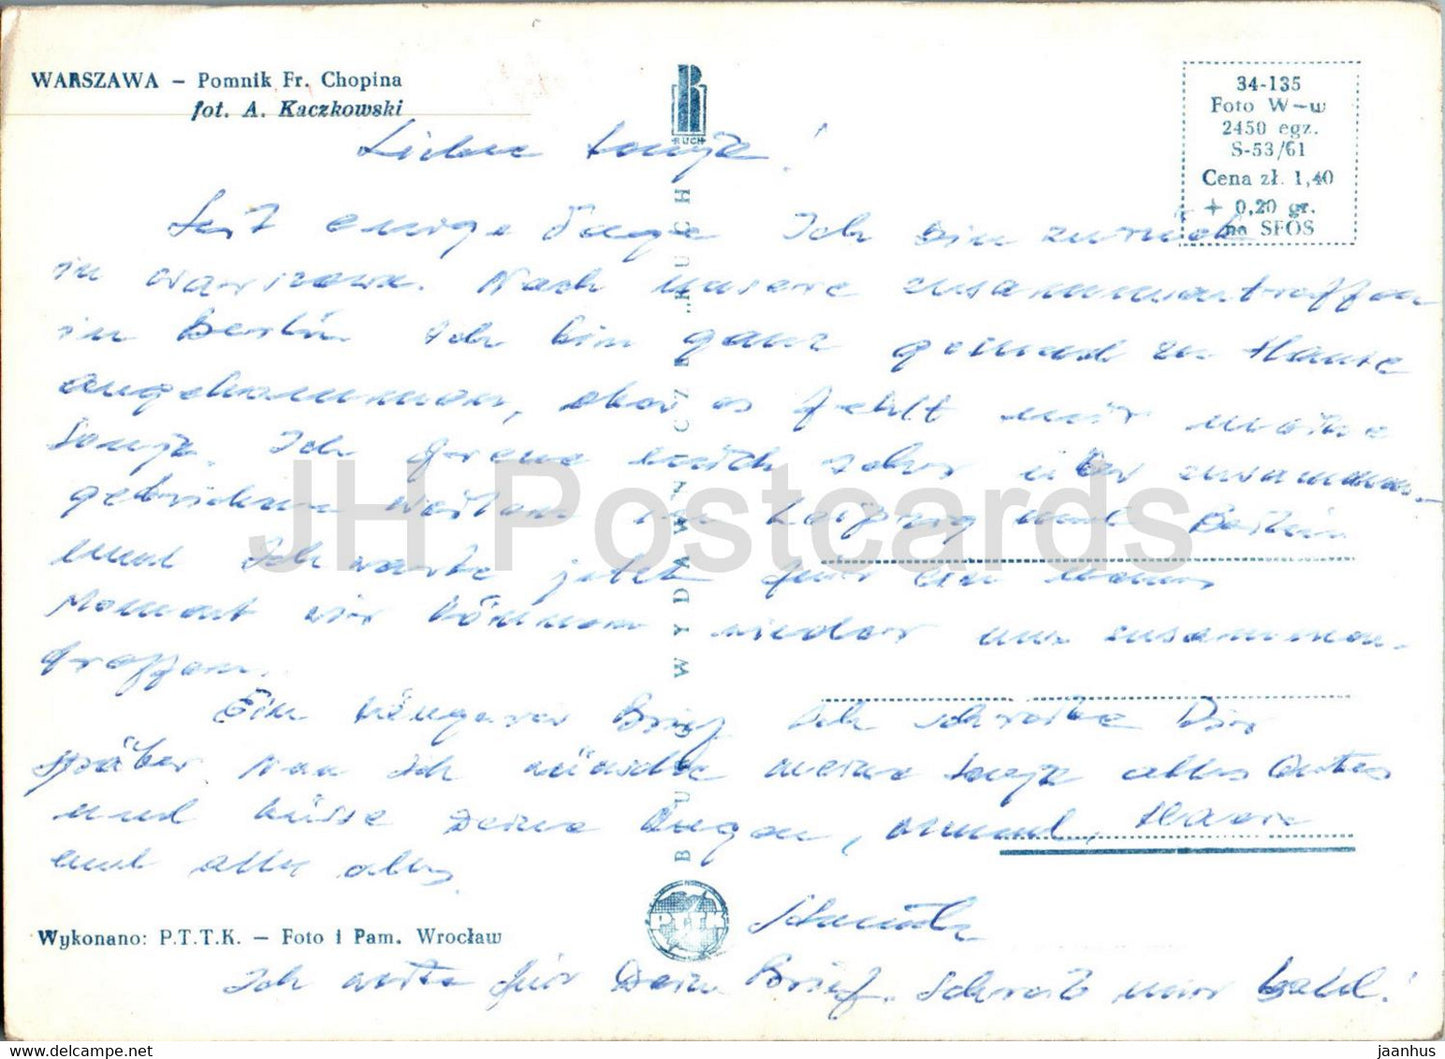 WARSZAWA – Pomnik Fr. Chopina
fot. A. Kaczkowski
RUCH
34-135
Foto W-w
2450 egz.
S-53/61
Cena zł. 1,40
+ 0,20 gr.
na SFOS
Liebe Sonja!
Seit einige Tage Ich bin zurück
in Warszawa. Nach unsere zusammentreffen
in Berlin Ich bin ganz gesund zu Hause
angekommen, aber es fehlt mir meine
Sonja. Ich freue mich sehr über zusammen-
gebrichen in Leipzig und Berlin
und Ich warte jetzt für ein
Moment wir können wieder uns zusammen-
treffen.
Ein längerer Brief Ich schreibe Dir
später Nun Ich wünsche meine Sonja alles Gutes
und küsse Deine Augen, Mund, Haare
und alles alles.
BIURO WYDAWNICZE „RUCH"
PTTK
Wykonano: P.T.T.K. – Foto i Pam. Wrocław
Ich warte für Dein Brief. Schreib mir bald!
JH Postcards
hip.com
jaanhus